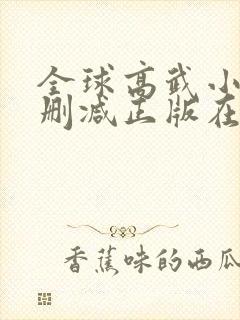 全球高武小
删减正版在
香蕉味的西瓜